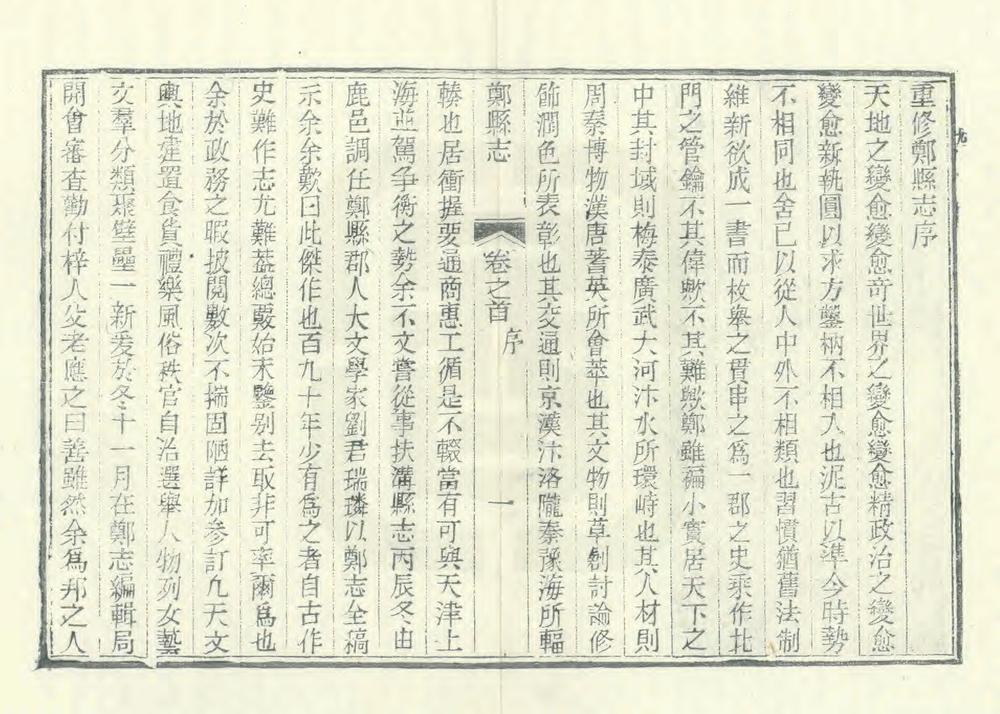 重修鄭縣志序
天地之變愈變愈奇世界之變愈變愈精政治之變愈
變愈新執圓以求方鑿枘不相入也泥古以準今時勢
不相同也舍己以從人中外不相類也習慣猶舊法制
維新欲成一書而枚舉之貫串之爲一郡之史乘作北
門之管鑰不其偉歟不其難歟鄭雖褊小實居天下之
中其封域則梅泰廣武大河汴水所環峙也其人材則
周秦博物漢唐蓍英所會萃也其文物則草創討論修
飾潤色所表彰也其交通則京漢汴洛隴秦豫海所輻
鄭縣志
卷之首
序
一
輳也居衝握要通商惠工循是不輟當有可與天津上
海並駕爭衡之勢余不文嘗從事扶溝縣志丙辰冬由
鹿邑調任鄭縣郡人大文學家劉君瑞璘以鄭志全稿
示余余歎曰此傑作也百九十年少有爲之者自古作
史難作志尤難蓋總覈始末鑒別去取非可率爾爲也
余於政務之暇披閱數次不揣固陋詳加參訂凡天文
輿地建置食貨禮樂風俗秩官自治選舉人物列女藝
文羣分類聚壁壘一新爰於冬十一月在鄭志編輯局
開會審查勸付梓人父老應之曰善雖然余爲邦之人